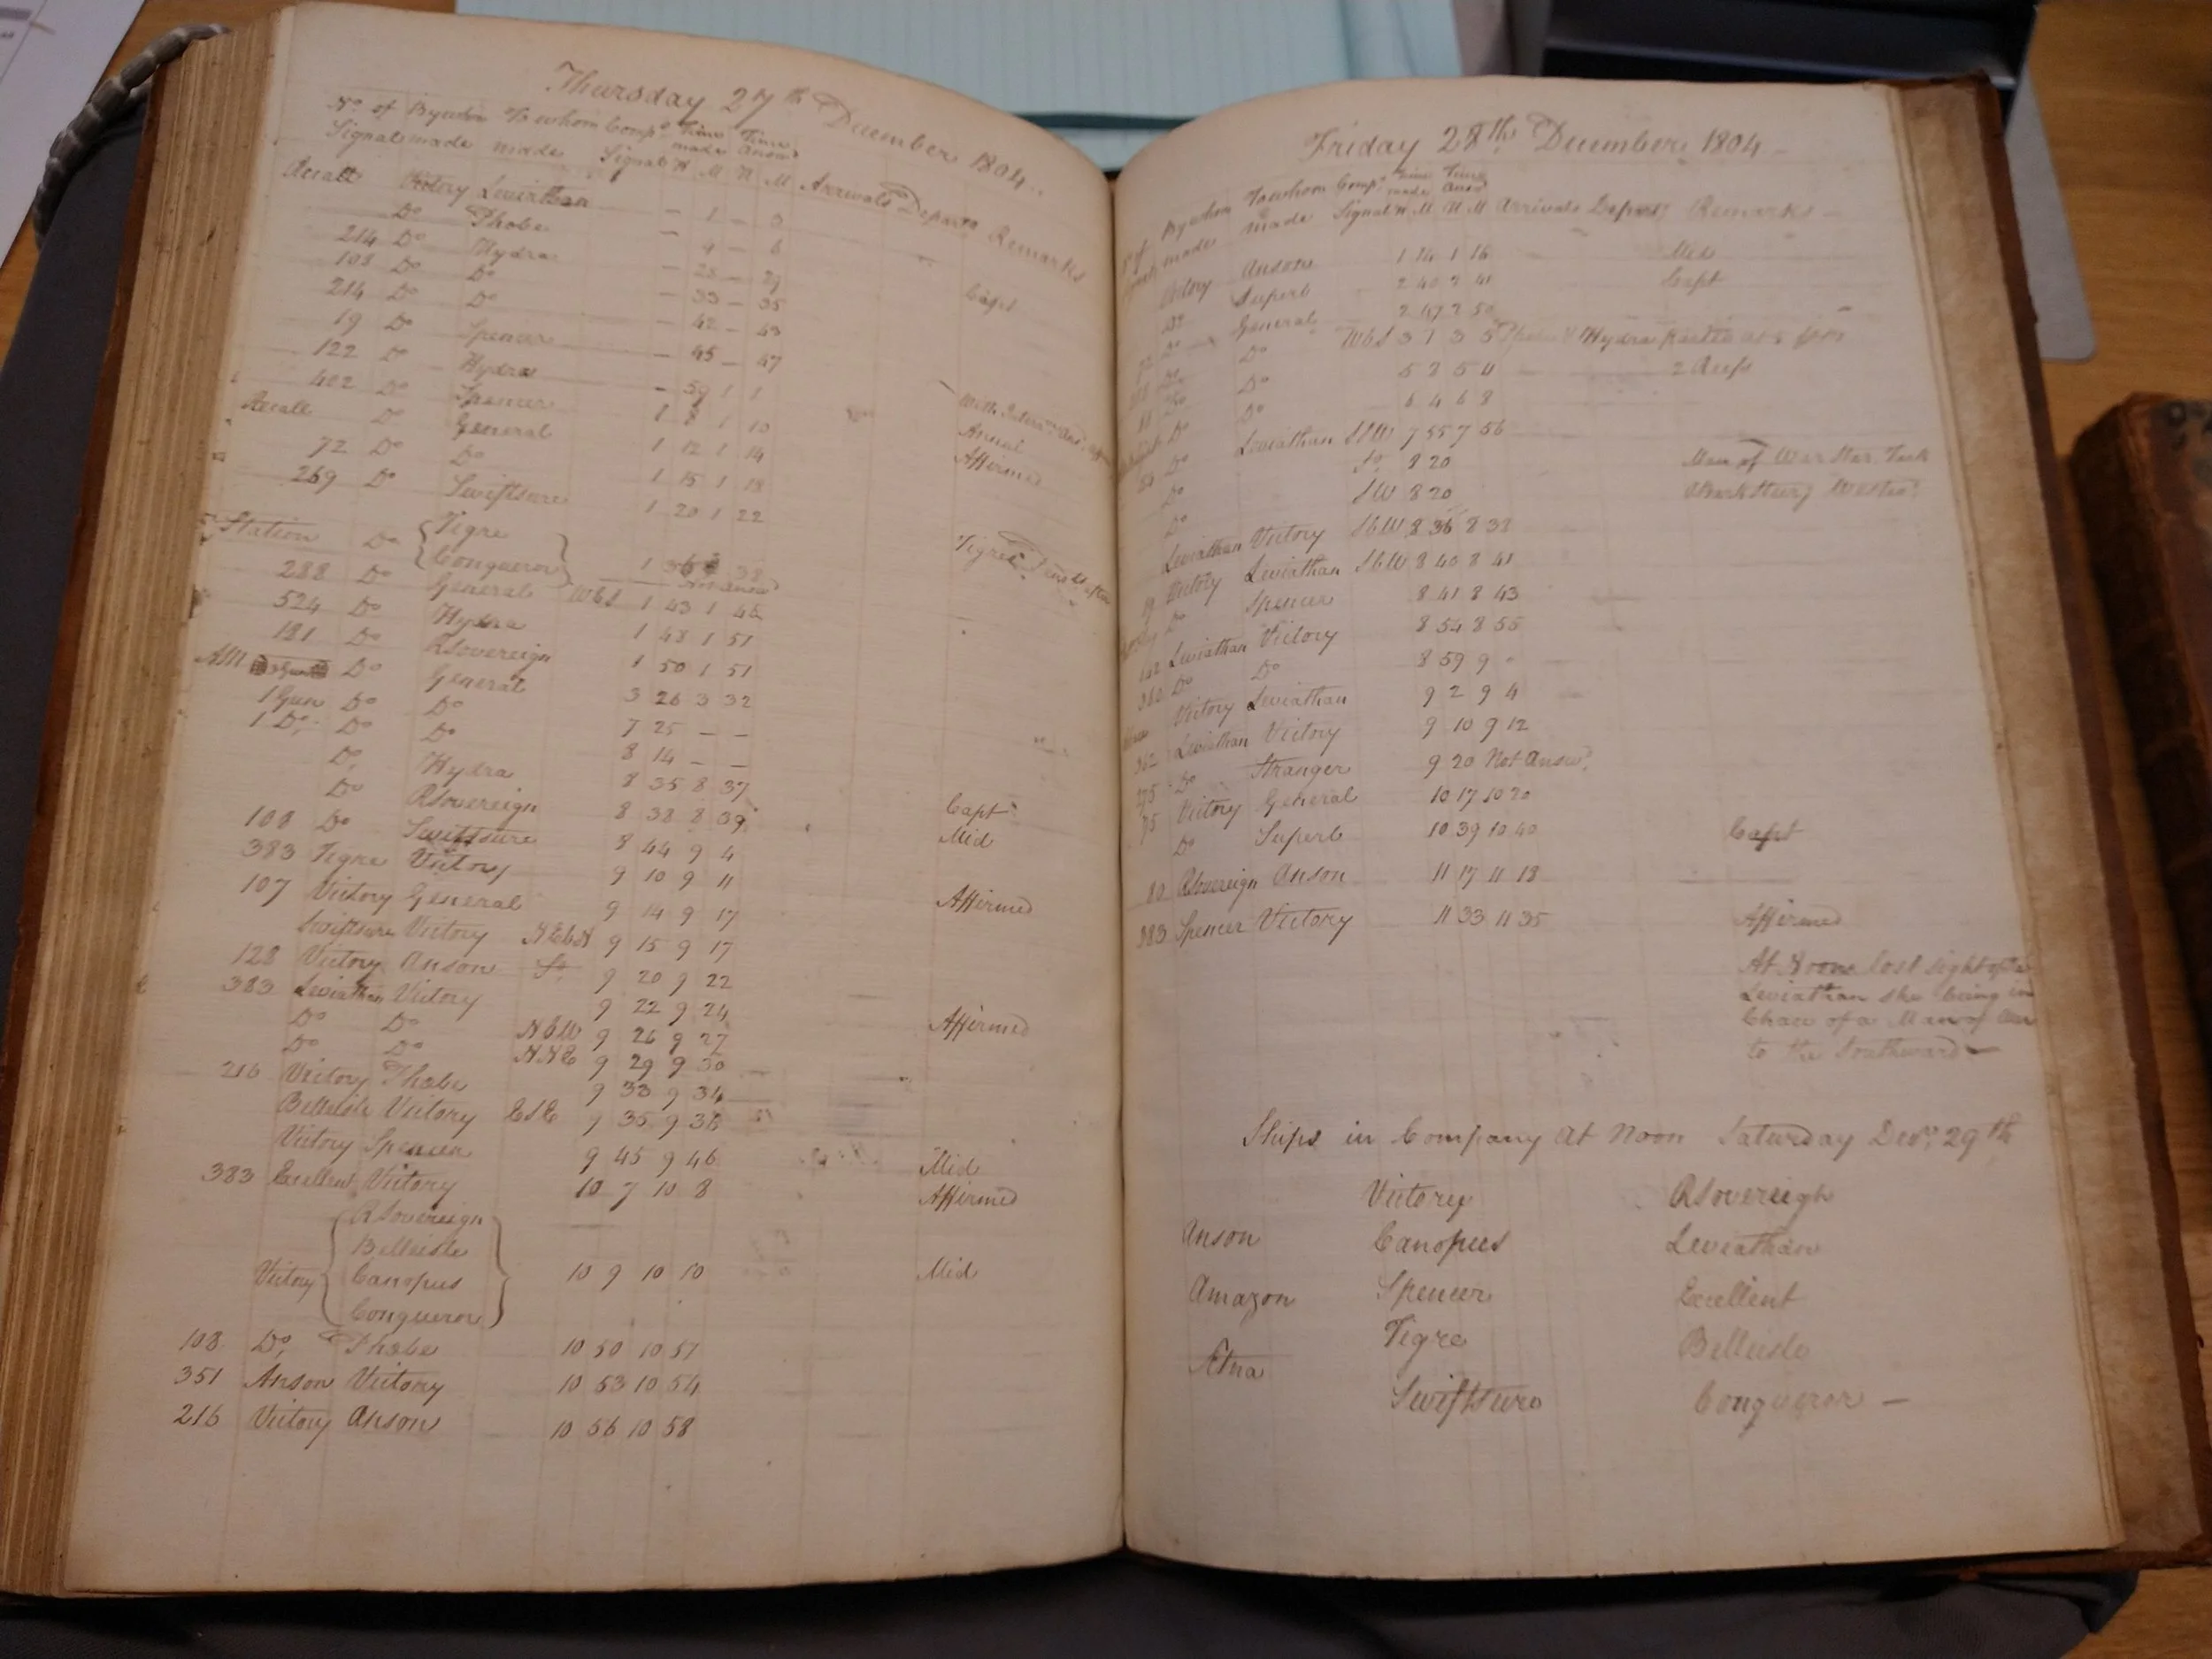 Thursday 27th December 1804
No. of By whom To whom Comps. Time Time
Signal made made Signal H M H M Arrivals Departs Remarks
made Answd
Recall Victory Leviathan - 1 - 3
Do Phobe - 4 - 6
214 Do Hydra - 28 - 29
108 Do Do - 33 - 35 Capt
214 Do Do - 42 - 43
19 Do Spencer - 45 - 47
122 Do Hydra - 59 1 1
402 Do Spencer 1 8 1 10
Recall Do General 1 12 1 14 Annul
72 Do Do 1 15 1 18 Affirmed
269 Do Swiftsure 1 20 1 22
Station Do Tigre
Conqueror 1 36 38 Tigre
288 Do General WbS 1 43 1 46
524 Do Hydra 1 48 1 51
181 Do RSovereign 1 50 1 51
AM Do General 3 26 3 32
1 Gun Do Do 7 25 - -
1 Do. Do Do 8 14 - -
Do. Hydra 8 35 8 37
Do RSovereign 8 38 8 39 Capt
108 Do Swiftsure 8 44 9 4 Mid
383 Tigre Victory 9 10 9 11
107 Victory General 9 14 9 17 Affirmed
Swiftsure Victory NEbN 9 15 9 17
128 Victory Anson 9 20 9 22
383 Leviathan Victory 9 22 9 24
Do Do NbW 9 26 9 27 Affirmed
Do Do NNE 9 29 9 30
216 Victory Phobe 9 33 9 34
Belleisle Victory ESE 9 35 9 38
Victory Spencer 9 45 9 46 Mid
383 Excellent Victory 10 7 10 8 Affirmed
RSovereign
Belleisle
Victory Canopus 10 9 10 10 Mid
Conqueror
108 Do, Phobe 10 50 10 51
351 Anson Victory 10 53 10 54
216 Victory Anson 10 56 10 58
Friday 28th December 1804
By whom To whom Comps. Time Time
made made Signal H M H M Arrivals Departs Remarks
made Answd
Victory Anson 1 14 1 16 Mid
Do Superb 2 40 2 41 Capt
Do General 2 47 2 50
Do Do WbS 3 1 3 5 Hydra
Do Do 5 8 5 11 2 Reefs
Do Do 6 4 6 8
Do Leviathan SSW 7 55 7 56
Do So. 8 20 Man of War Star. Tack
Do SW 8 20
Leviathan Victory SbW 8 36 8 38
19 Victory Leviathan SbW 8 40 8 41
Do Spencer 8 41 8 43
142 Leviathan Victory 8 54 8 55
360 Do Do 8 59 9 -
Victory Leviathan 9 2 9 4
362 Leviathan Victory 9 10 9 12
275 Do Stranger 9 20 Not Answd.
75 Victory General 10 17 10 20
Do Superb 10 39 10 40 Capt
80 RSovereign Anson 11 17 11 18
383 Spencer Victory 11 33 11 35 Affirmed
At Noon lost sight of the
Leviathan she being in
Chace of a Man of War
to the Southward -
Ships in Company at Noon Saturday Decr. 29th
Victory RSovereign
Anson Canopus Leviathan
Amazon Spencer Excellent
Tigre Belleisle
Ætna
Swiftsure Conqueror -